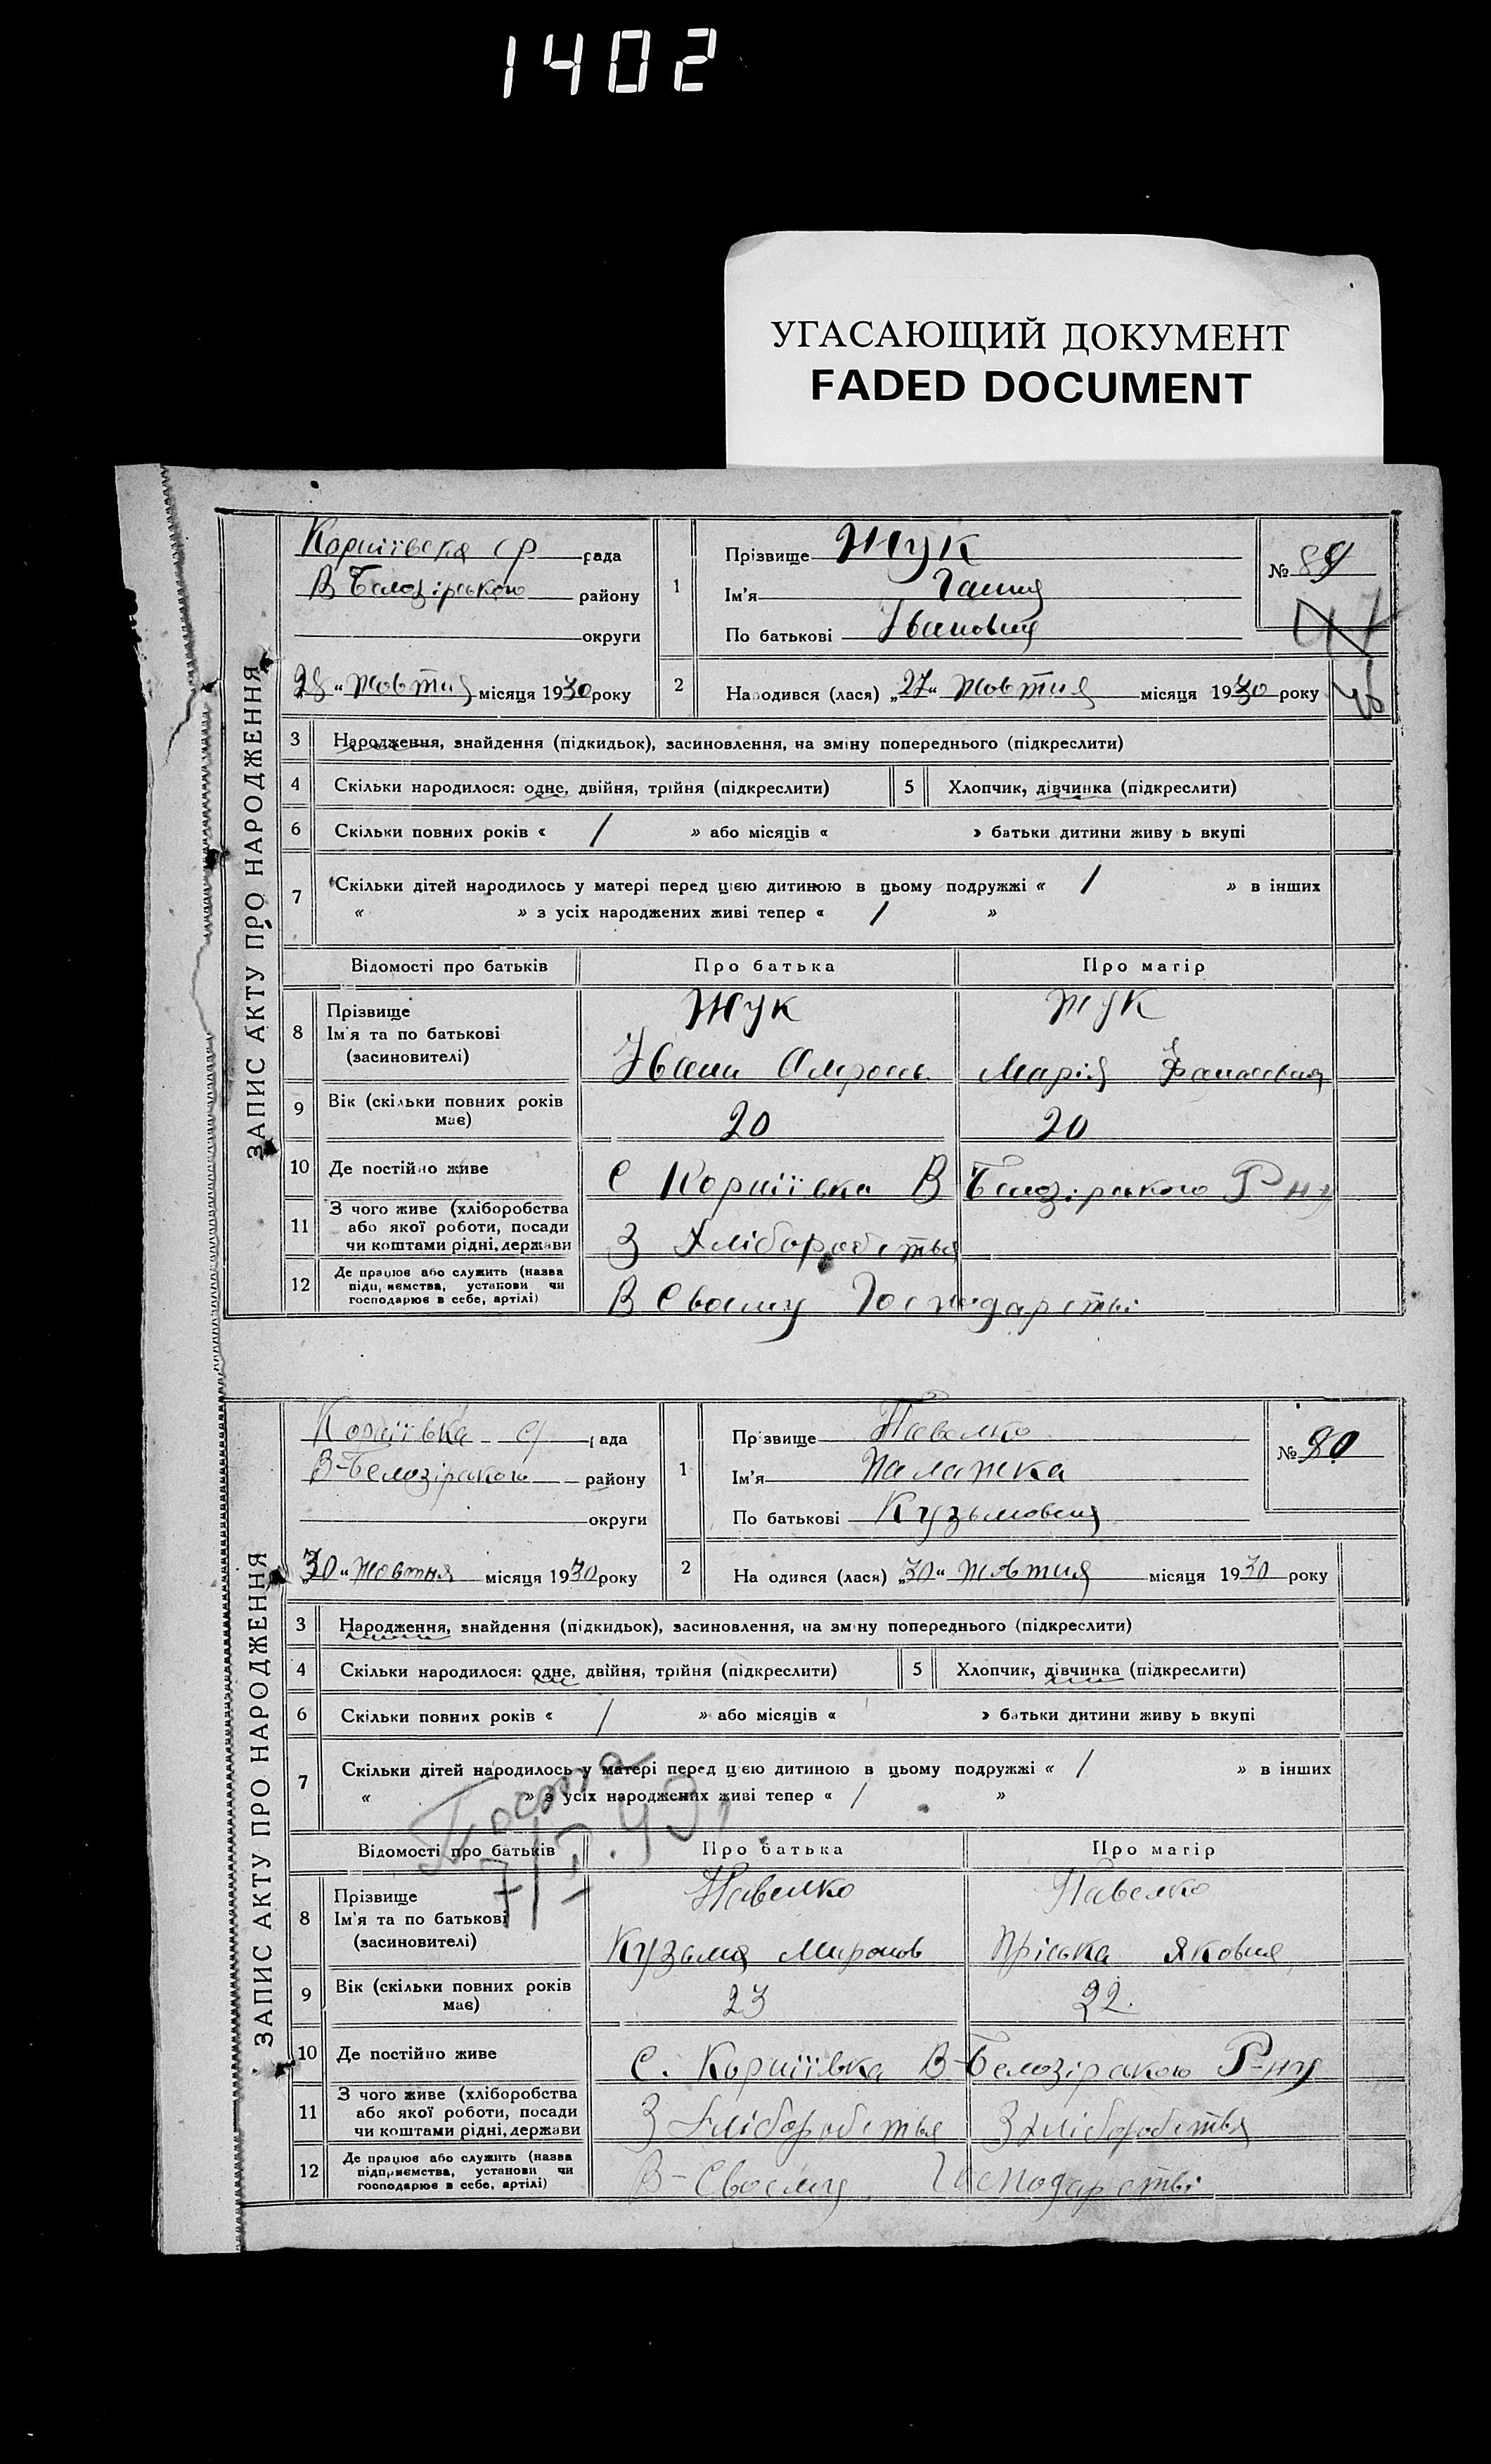 1402
УГАСАЮЩИЙ ДОКУМЕНТ
FADED DOCUMENT
ЗАПИС АКТУ ПРО НАРОДЖЕННЯ
Корніївська с р рада
В Белозірського району
округи
28 “ жовтня місяця 1930 року
1
Прізвище Жук
Ім'я Ганна
По батькові Івановна
№ 89
2
Народився (лася) „27“ жовтня місяця 1930 року
3 Народження, знайдення (підкидьок), засиновлення, на зміну попереднього (підкреслити)
4 Скільки народилося: одне, двійня, трійня (підкреслити) 5 Хлопчик, дівчинка (підкреслити)
6 Скільки повних років « / » або місяців « » батьки дитини живу ь вкупі
7 Скільки дітей народилось у матері перед цією дитиною в цьому подружжі « / » в інших
« » з усіх народжених живі тепер « / »
Відомості про батьків Про батька Про матір
8 Прізвище
Ім'я та по батькові
(засиновителі)
Жук Жук
Іван Марія
9 Вік (скільки повних років
має)
20 20
10 Де постійно живе С Корніївка В Белозірського Р ну
11 З чого живе (хліборобства
або якої роботи, посади
чи коштами рідні, держави
З Хліборобства
12 Де працює або служить (назва
підприємства, установи чи
господарює в себе, артілі)
В Своєму Господарстві
ЗАПИС АКТУ ПРО НАРОДЖЕННЯ
Корніївка с/ рада
В-Белозірського району
округи
„30“ жовтня місяця 1930 року
1
Прізвище Павелко
Ім'я Палажка
По батькові Кузьмовна
№ 90
2
На одився (лася) „30“ жовтня місяця 1930 року
3 Народження, знайдення (підкидьок), засиновлення, на зміну попереднього (підкреслити)
4 Скільки народилося: одне, двійня, трійня (підкреслити) 5 Хлопчик, дівчинка (підкреслити)
6 Скільки повних років « / » або місяців « » батьки дитини живу ь вкупі
7 Скільки дітей народилось у матері перед цією дитиною в цьому подружжі « / » в інших
« » з усіх народжених живі тепер « / »
Відомості про батьків Про батька Про матір
8 Прізвище
Ім'я та по батькові
(засиновителі)
Павелко Павелко
Кузьма Миронов Пріська Яковна
9 Вік (скільки повних років
має)
23 22.
10 Де постійно живе С. Корніївка В-Белозірського Р-ну
11 З чого живе (хліборобства
або якої роботи, посади
чи коштами рідні, держави
З Хліборобства З хліборобства
12 Де працює або служить (назва
підприємства, установи чи
господарює в себе, артілі)
В-Своєму Господарстві